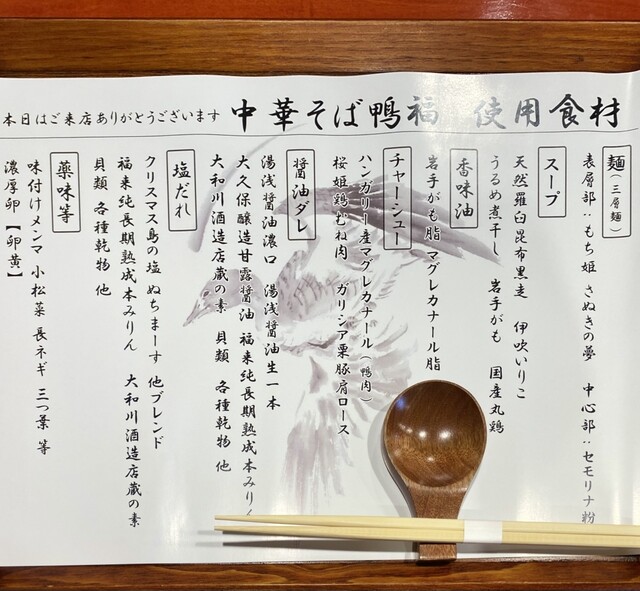 本日はご来店ありがとうございます 中華そば鴨福 使用食材
麺(三層麺)
表層部:もち姫 さぬきの夢 中心部:セモリナ粉
スープ
天然羅臼昆布黒走 伊吹いりこ
うるめ煮干し 岩手がも 国産丸鶏
香味油
岩手がも脂 マグレカナール脂
チャーシュー
ハンガリー産マグレカナール(鴨肉)
桜姫鶏むね肉 ガリシア栗豚肩ロース
醤油ダレ
湯浅醤油濃口 湯浅醤油生一本
大久保醸造甘露醤油 福来純長期熟成本みりん
大和川酒造店蔵の素 貝類 各種乾物 他
塩だれ
クリスマス島の塩 ぬちまーす 他ブレンド
福来純長期熟成本みりん 大和川酒造店蔵の素
貝類 各種乾物 他
薬味等
味付けメンマ 小松菜 長ネギ 三つ葉 等
濃厚卵【卵黄】